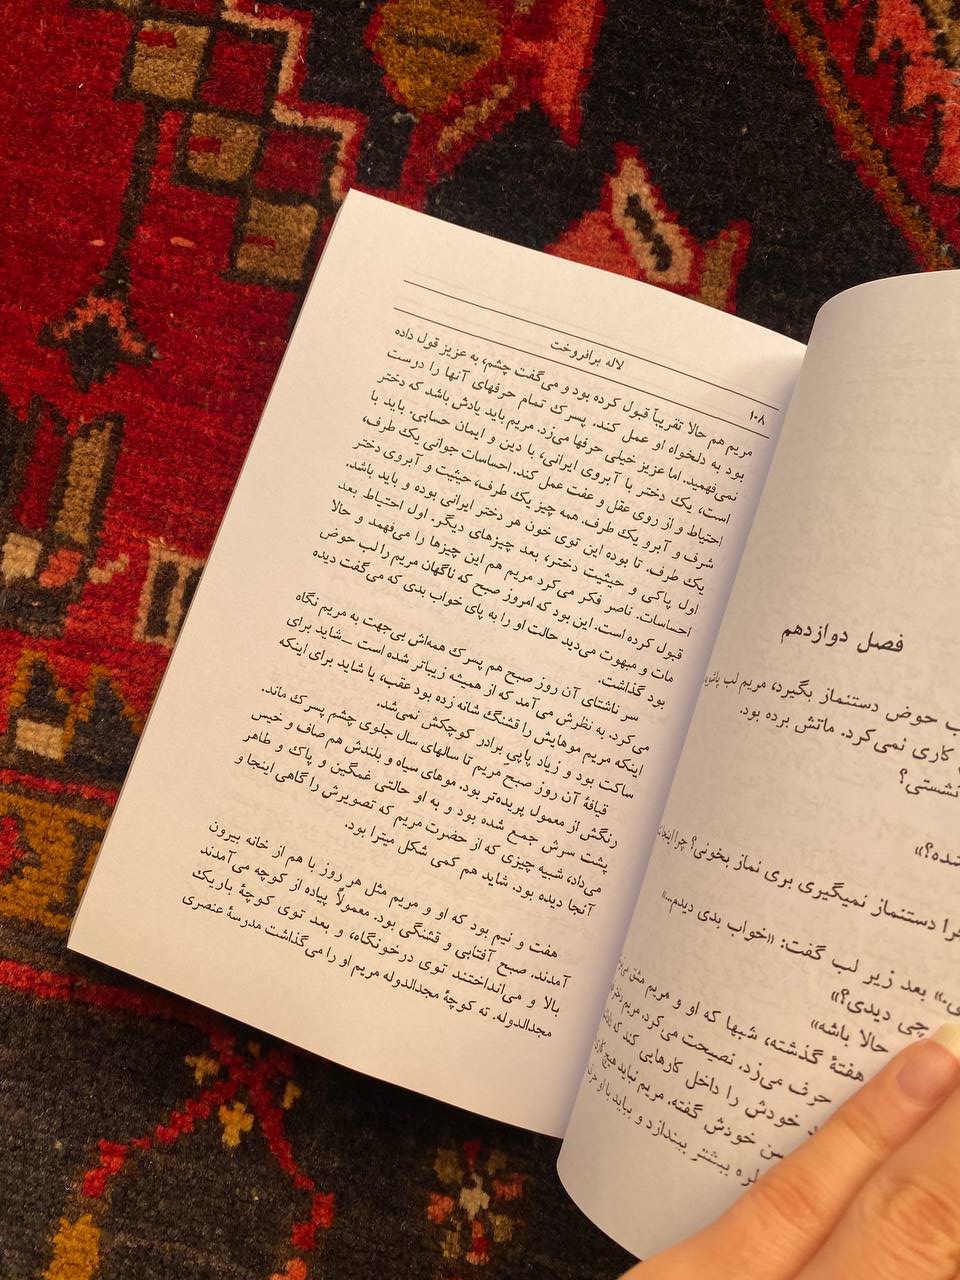 ۱۰۸
لاله برافروخت
مریم هم حالا تقریباً قبول کرده بود و می‌گفت چشم، به عزیز قول داده
بود به دلخواه او عمل کند. پسرک تمام حرفهای آنها را درست
نمی‌فهمید. اما عزیز خیلی حرفها می‌زد. مریم باید یادش باشد که دختر
است، یک دختر با آبروی ایرانی، با دین و ایمان حسابی. باید با
احتیاط و از روی عقل و عفت عمل کند. احساسات جوانی یک طرف،
شرف و آبرو یک طرف. همه چیز یک طرف، حیثیت و آبروی دختر
یک طرف. تا بوده این توی خون هر دختر ایرانی بوده و باید باشد.
اول پاکی و حیثیت دختر، بعد چیزهای دیگر. اول احتیاط بعد
احساسات. ناصر فکر می‌کرد مریم هم این چیزها را می‌فهمد و حالا
قبول کرده است. این بود که امروز صبح که ناگهان مریم را لب حوض
مات و مبهوت می‌دید حالت او را به پای خواب بدی که می‌گفت دیده
بود گذاشت.
سر ناشتای آن روز صبح هم پسرک همه‌اش بی‌جهت به مریم نگاه
می‌کرد. به نظرش می‌آمد که از همیشه زیباتر شده است —شاید برای
اینکه مریم موهایش را قشنگ شانه زده بود عقب، یا شاید برای اینکه
ساکت بود و زیاد پاپی برادر کوچکش نمی‌شد.
قیافهٔ آن روز صبح مریم تا سالهای سال جلوی چشم پسرک ماند.
رنگش از معمول پریده‌تر بود. موهای سیاه و بلندش هم صاف و خیس
پشت سرش جمع شده بود و به او حالتی غمگین و پاک و طاهر
می‌داد، شبیه چیزی که از حضرت مریم که تصویرش را گاهی اینجا و
آنجا دیده بود. شاید هم کمی شکل میترا بود.
هفت و نیم بود که او و مریم مثل هر روز با هم از خانه بیرون
آمدند. صبح آفتابی و قشنگی بود. معمولاً پیاده از کوچه می‌آمدند
بالا و می‌انداختند توی درخونگاه، و بعد توی کوچهٔ باریک
مجدالدوله. ته کوچهٔ مجدالدوله مریم او را می‌گذاشت مدرسهٔ عنصری
فصل دوازدهم
ب حوض دستنماز بگیرد، مریم لب
کاری نمی‌کرد. ماتش برده بود.
نشستی؟
شده؟»
چرا دستنماز نمیگیری بری نماز بخونی؟ چرا اینجا
بعد زیر لب گفت: «خواب بدی دیدم...»
چی دیدی؟»
حالا باشه»
هفتهٔ گذشته، شبها که او و مریم مشق
حرف می‌زد. نصیحت می‌کرد. مریم دختر
خودش را داخل کارهایی کند که
خودش گفته. مریم نباید هیچ
بیشتر بیندازد و بیاید با او